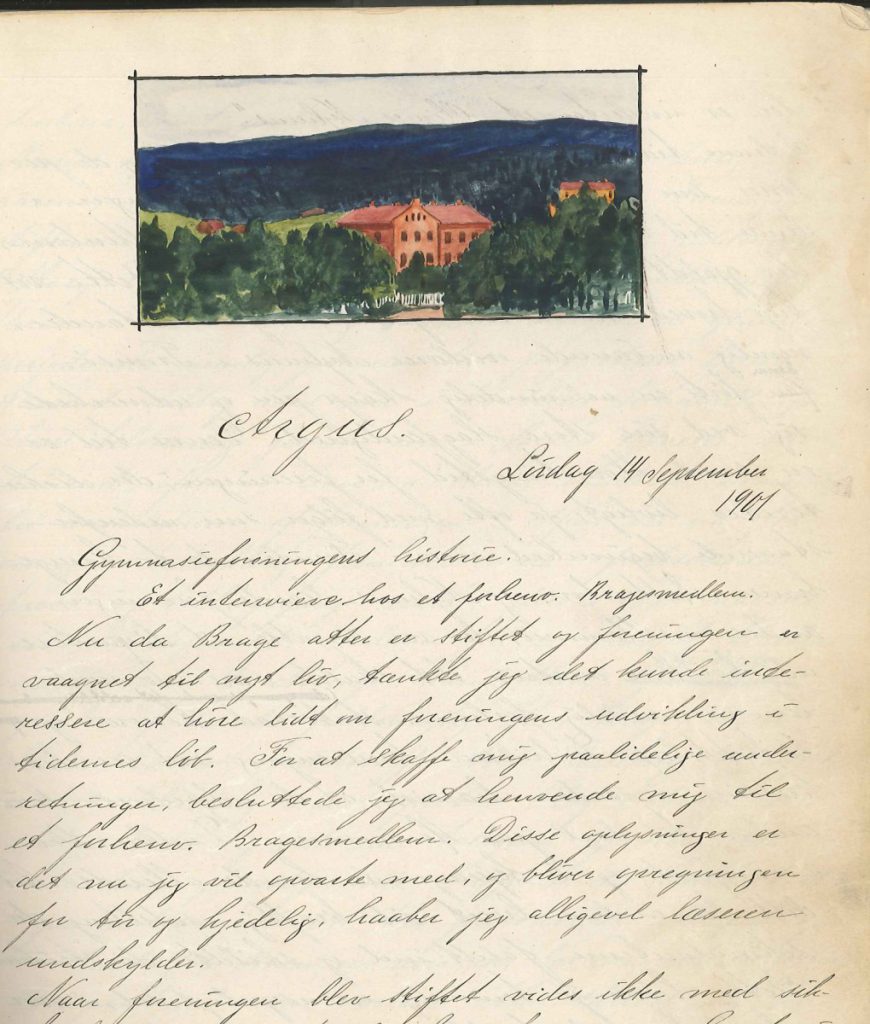 Argus.
Lördag 14 September
1901
Gymnasieforeningens historie.
Et interwieve hos et forhenv. Bragesmedlem.
Nu da Brage atter er stiftet og foreningen er
vaagnet til nyt liv, tænkte jeg det kunde inte-
ressere at høre lidt om foreningens udvikling i
tidernes løb. For at skaffe mig paalidelige under-
retninger, besluttede jeg at henvende mig til
et forhenv. Bragesmedlem. Disse oplysninger er
det nu jeg vil opvarte med, og bliver opregningen
for tør og kjedelig, haaber jeg alligevel læseren
undskylder.
Naar foreningen blev stiftet vides ikke med sik-